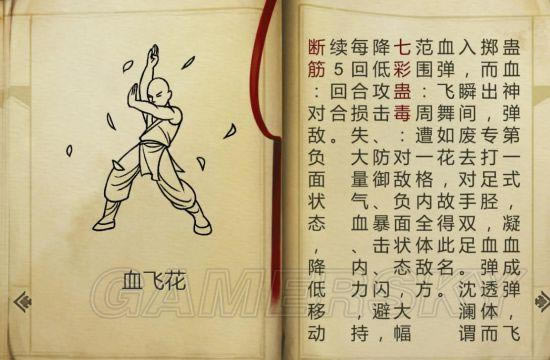 蛊血神弹第一式，凝血成弹，飞
掷而出，专打足胫，血弹透体而
入，瞬间废去对手双足。沈澜谓
血弹飞舞如花，故得此名。
范围：周遭一格内全体敌方。
七彩蛊毒：对敌负面状态，大幅
降低攻击、防御、暴击、闪避，
每回合损失大量气血、内力，持
续5回合。
断筋：对敌负面状态，降低移动
血飞花
GAMERSKY